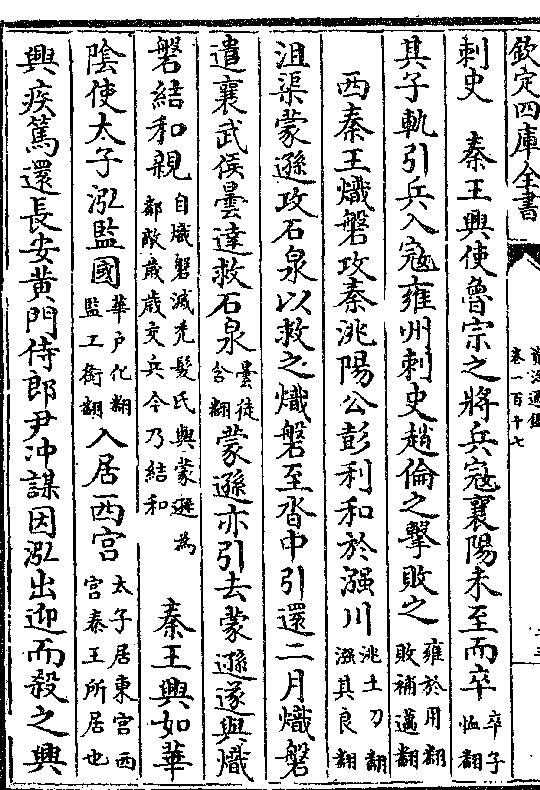 欽定四庫全書
卷一百十七
刺史　秦王興使魯宗之將兵寇襄陽未至而卒卒子恤翻
其子軌引兵入寇雍州刺史趙倫之擊敗之雍於用翻敗補邁翻
西秦王熾磐攻秦洮陽公彭利和於漒川洮土刀翻漒其良翻
沮渠蒙遜攻石泉以救之熾磐至沓中引還二月熾磐
遣襄武侯曇達救石泉曇徒含翻蒙遜亦引去蒙遜遂與熾
磐結和親自熾磐滅禿髮氏與蒙遜為鄰敵歲歲交兵今乃結和　秦王興如華
陰使太子泓監國華户化翻監工銜翻入居西宮太子居東宮西宮秦王所居也
興疾篤還長安黃門侍郎尹冲謀因泓出迎而殺之興